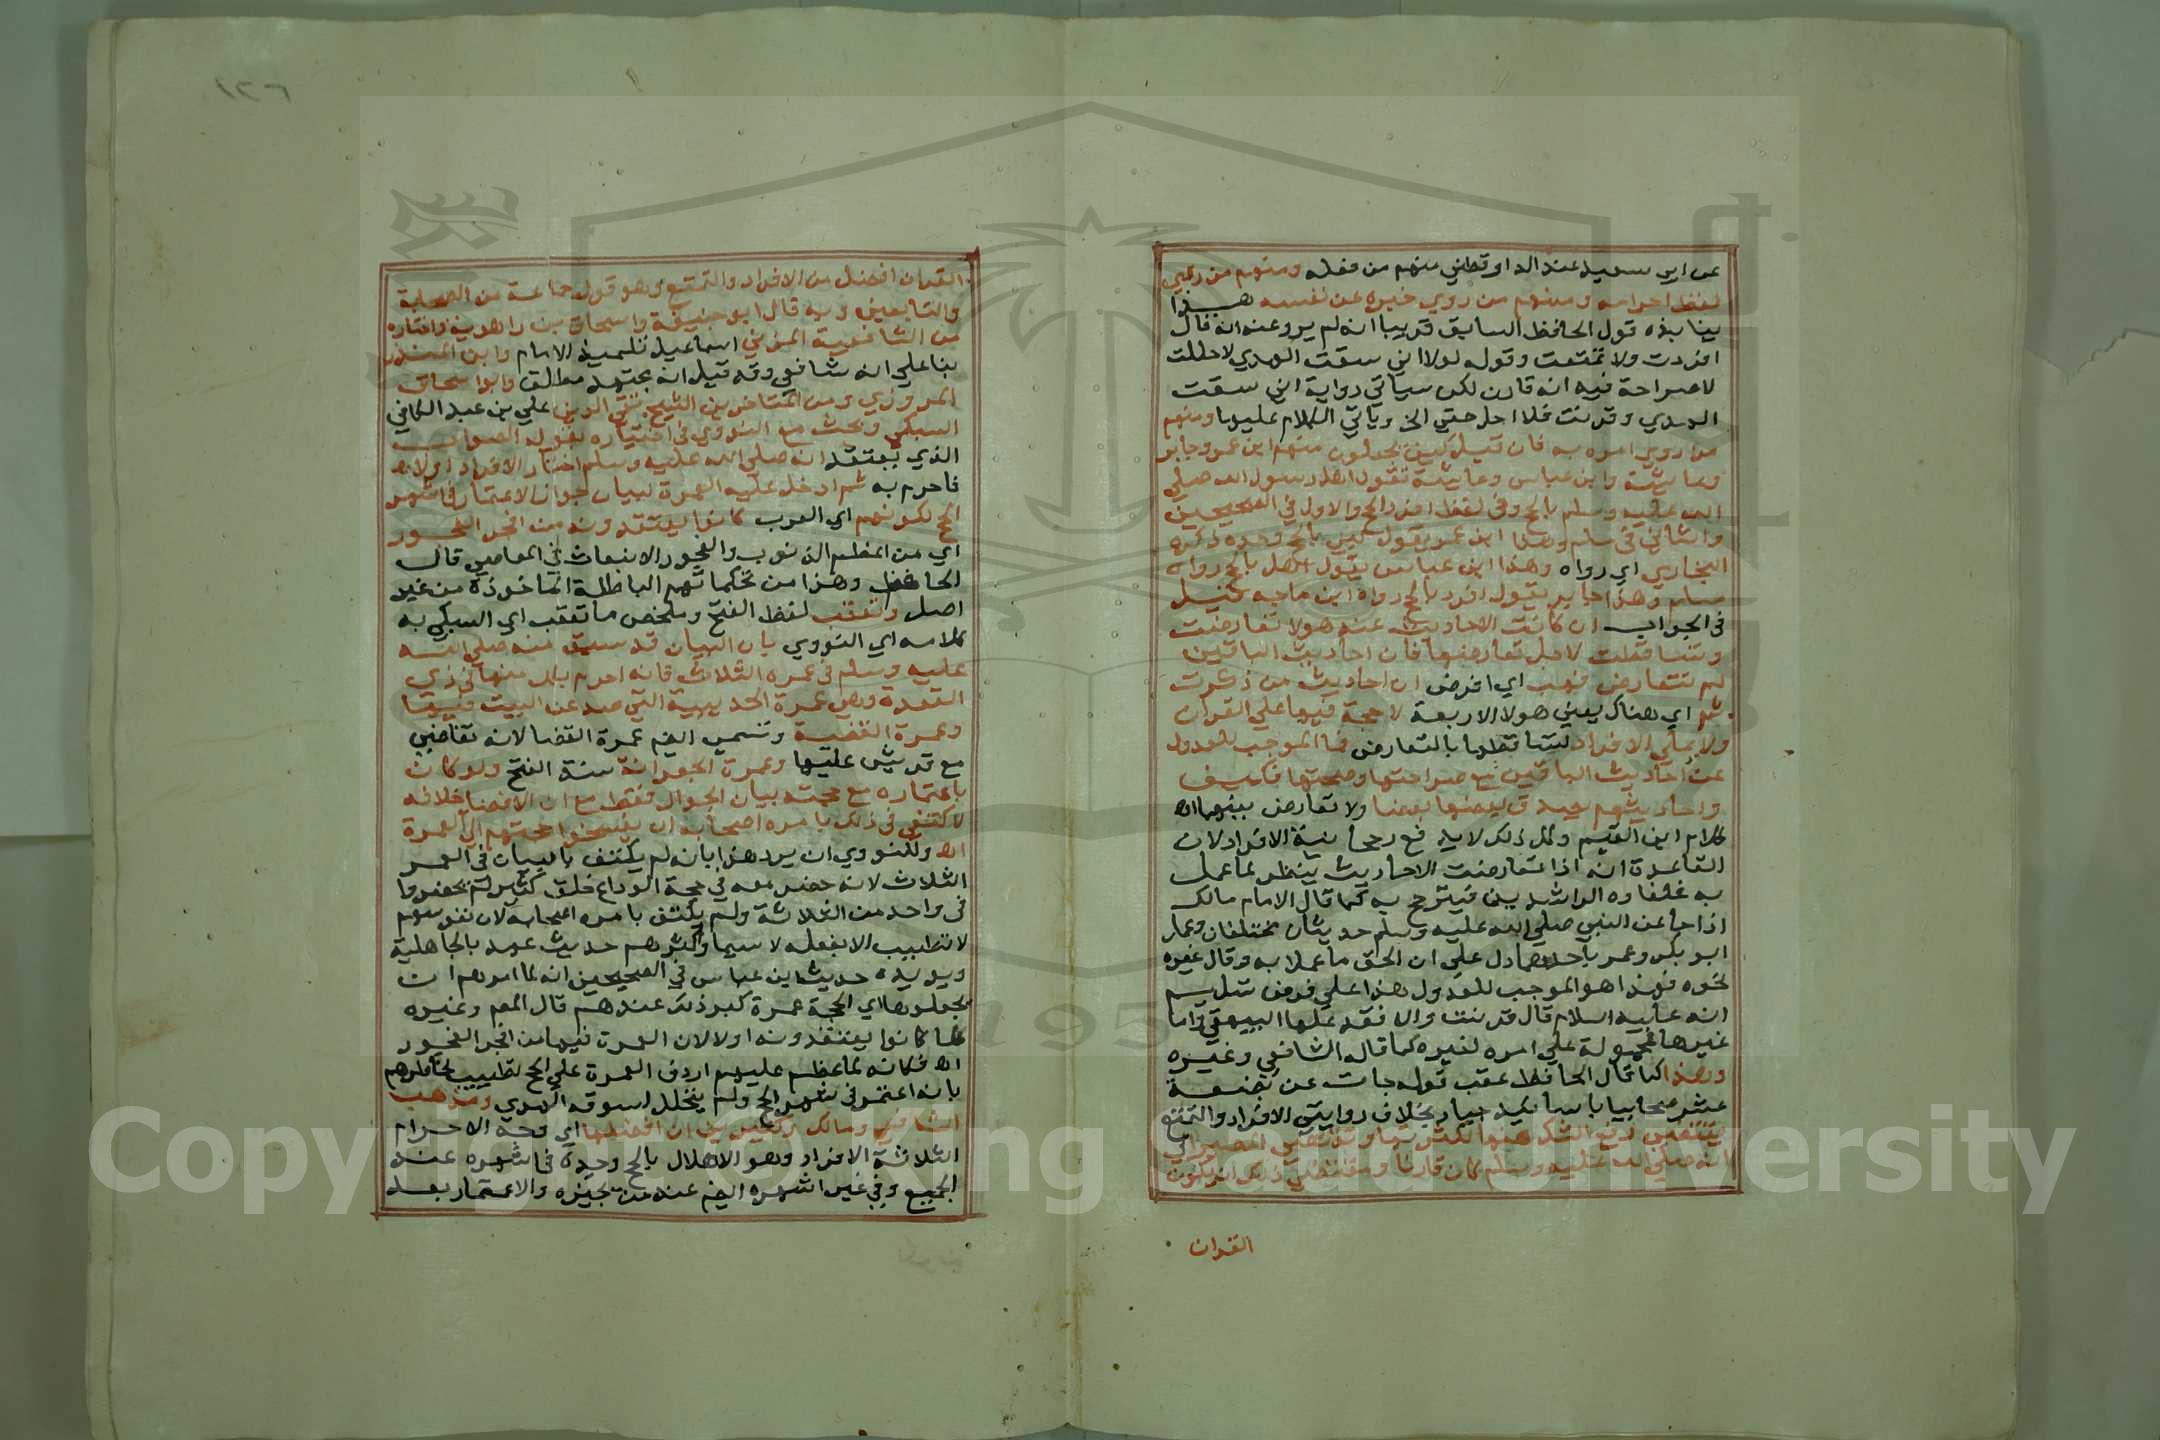 عن ابي سعيد عند الدارقطني منهم من فعله ومنهم من روي
لفظ احرامه ومنهم من روي خبره عن نفسه هذا
ينابذه قول الحافظ السابق قريبا انه لم يرو عنه انه قال
افردت ولا تمتعت وقوله لولا اني سقت الهدي لاحللت
لاصراحة فيه انه قارن لكن سياتي رواية اني سقت
الهدي وقرنت فلا احل حتي الخ وياتي الكلام عليها ومنهم
من روي امره به فان قيل كيف تجعلون منهم ابن عمر وجابر
وعايشة وابن عباس وعايشة تقول اهل رسول الله صلي
الله عليه وسلم بالحج وفي لفظ افرد الحج والاول في الصحيحين
والثاني في مسلم وهذا ابن عمر يقول لبي بالحج وحده ذكره
البخاري اي رواه وهذا ابن عباس يقول اهل بالحج رواه
مسلم وهذا جابر يقول افرد بالحج رواه ابن ماجه قيل
في الجواب ان كانت الاحاديث عند هولا تعارضت
وتساقطت لاجل تعارضها فان احاديث الباقين
لم تتعارض فهب اي افرض ان احاديث من ذكرت
ثم اي هناك يعني هولا الاربعة لا حجة فيها علي القران
ولا علي الافراد لتساقطها بالتعارض فما الموجب للعدول
عن احاديث الباقين مع صراحتها وصحتها فكيف
واحاديثهم يصدق بعضها بعضا ولا تعارض بينها اه
كلام ابن القيم وكل ذلك لا يدفع رجحانية الافراد لان
القاعدة انه اذا تعارضت الاحاديث ينظر لما عمل
به خلفاوه الراشدين فيترجح به كما قال الامام مالك
اذا جا عن النبي صلي الله عليه وسلم حديثان مختلفان وعمل
ابو بكر وعمر باحدهما دل علي ان الحق ما عملا به وقال غيره
نحوه فهذا هو الموجب للعدول هذا علي فرض تسليم
انه عليه السلام قال قرنت والا فقد علها البيهقي واما
غيرها فمحمولة علي امره لغيره كما قاله الشافعي وغيره
وهذا كما قال الحافظ عقب قوله جات عن بضعة
عشر صحابيا باسانيد جياد بخلاف روايتي الافراد والتمتع
يقتضي رفع الشك عنها لكثرتها ويقتضي المصير الي
انه صلي الله عليه وسلم كان قارنا ومقتضي ذلك ان يكون
القران
القران افضل من الافراد والتمتع وهو قول جماعة من الصحابة
والتابعين وبه قال ابو حنيفة واسحاق بن راهويه واختاره
من الشافعية المزني اسماعيل تلميذ الامام وابن المنذر
بنا علي انه شافعي وقد قيل انه مجتهد مطلق وابو اسحاق
المروزي ومن المتاخرين الشيخ تقي الدين علي بن عبد الكافي
السبكي وبحث مع النووي في اختياره بقوله الصواب
الذي يعتقد انه صلي الله عليه وسلم اختار الافراد اولا اه
فاحرم به ثم ادخل عليه العمرة لبيان جواز الاعتمار في اشهر
الحج لكونهم اي العرب كانوا يعتقدونه من افجر الفجور
اي من اعظم الذنوب والفجور الانبعاث في المعاصي قال
الحافظ وهذا من تحكماتهم الباطلة الماخوذة من غير
اصل وتعقب لفظ الفتح وملخص ما تعقب اي السبكي به
كلامه اي النووي بان البيان قد سبق منه صلي الله
عليه وسلم في عمره الثلاث فانه احرم بكل منها في ذي
القعدة وهي عمرة الحديبية التي صد عن البيت فيها
وعمرة القضية وتسمي ايضم عمرة القضا لانه تقاضي
مع قريش عليها وعمرة الجعرانة سنة الفتح ولو كان
باعتماره مع حجته بيان الجواز فقط مع ان الافضل خلافه
لاكتفي في ذلك بامره اصحابه ان يفسخوا حجتهم الي العمرة
اه وللنووي ان يرد هذا بانه لم يكتف بالبيان في العمر
الثلاث لانه حضر معه في حجة الوداع خلق كثير لم يحضروا
في واحد من الثلاثة ولم يكتف بامره اصحابه لان نفوسهم
لا تطيب الا بفعله لا سيما واكثرهم حديث عهد بالجاهلية
ويويده حديث ابن عباس في الصحيحين انه لما امرهم ان
يجعلوها اي الحجة عمرة كبر ذلك عندهم قال المم وغيره
لما كانوا يعتقدونه اولا لان العمرة فيها من افجر الفجور
اه فكانه لما عظم عليهم اردف العمرة علي الحج تطييبا لخاطرهم
بانه اعتمر في شهر الحج ولم يتحلل لسوقه الهدي ومذهب
الشافعي ومالك وكثيرين ان افضلها اي وجه الاحرام
الثلاثة الافراد وهو الاهلال بالحج وحده في اشهره عند
الجميع وفي غير اشهره ايضم عند من يجيزه والاعتمار بعد